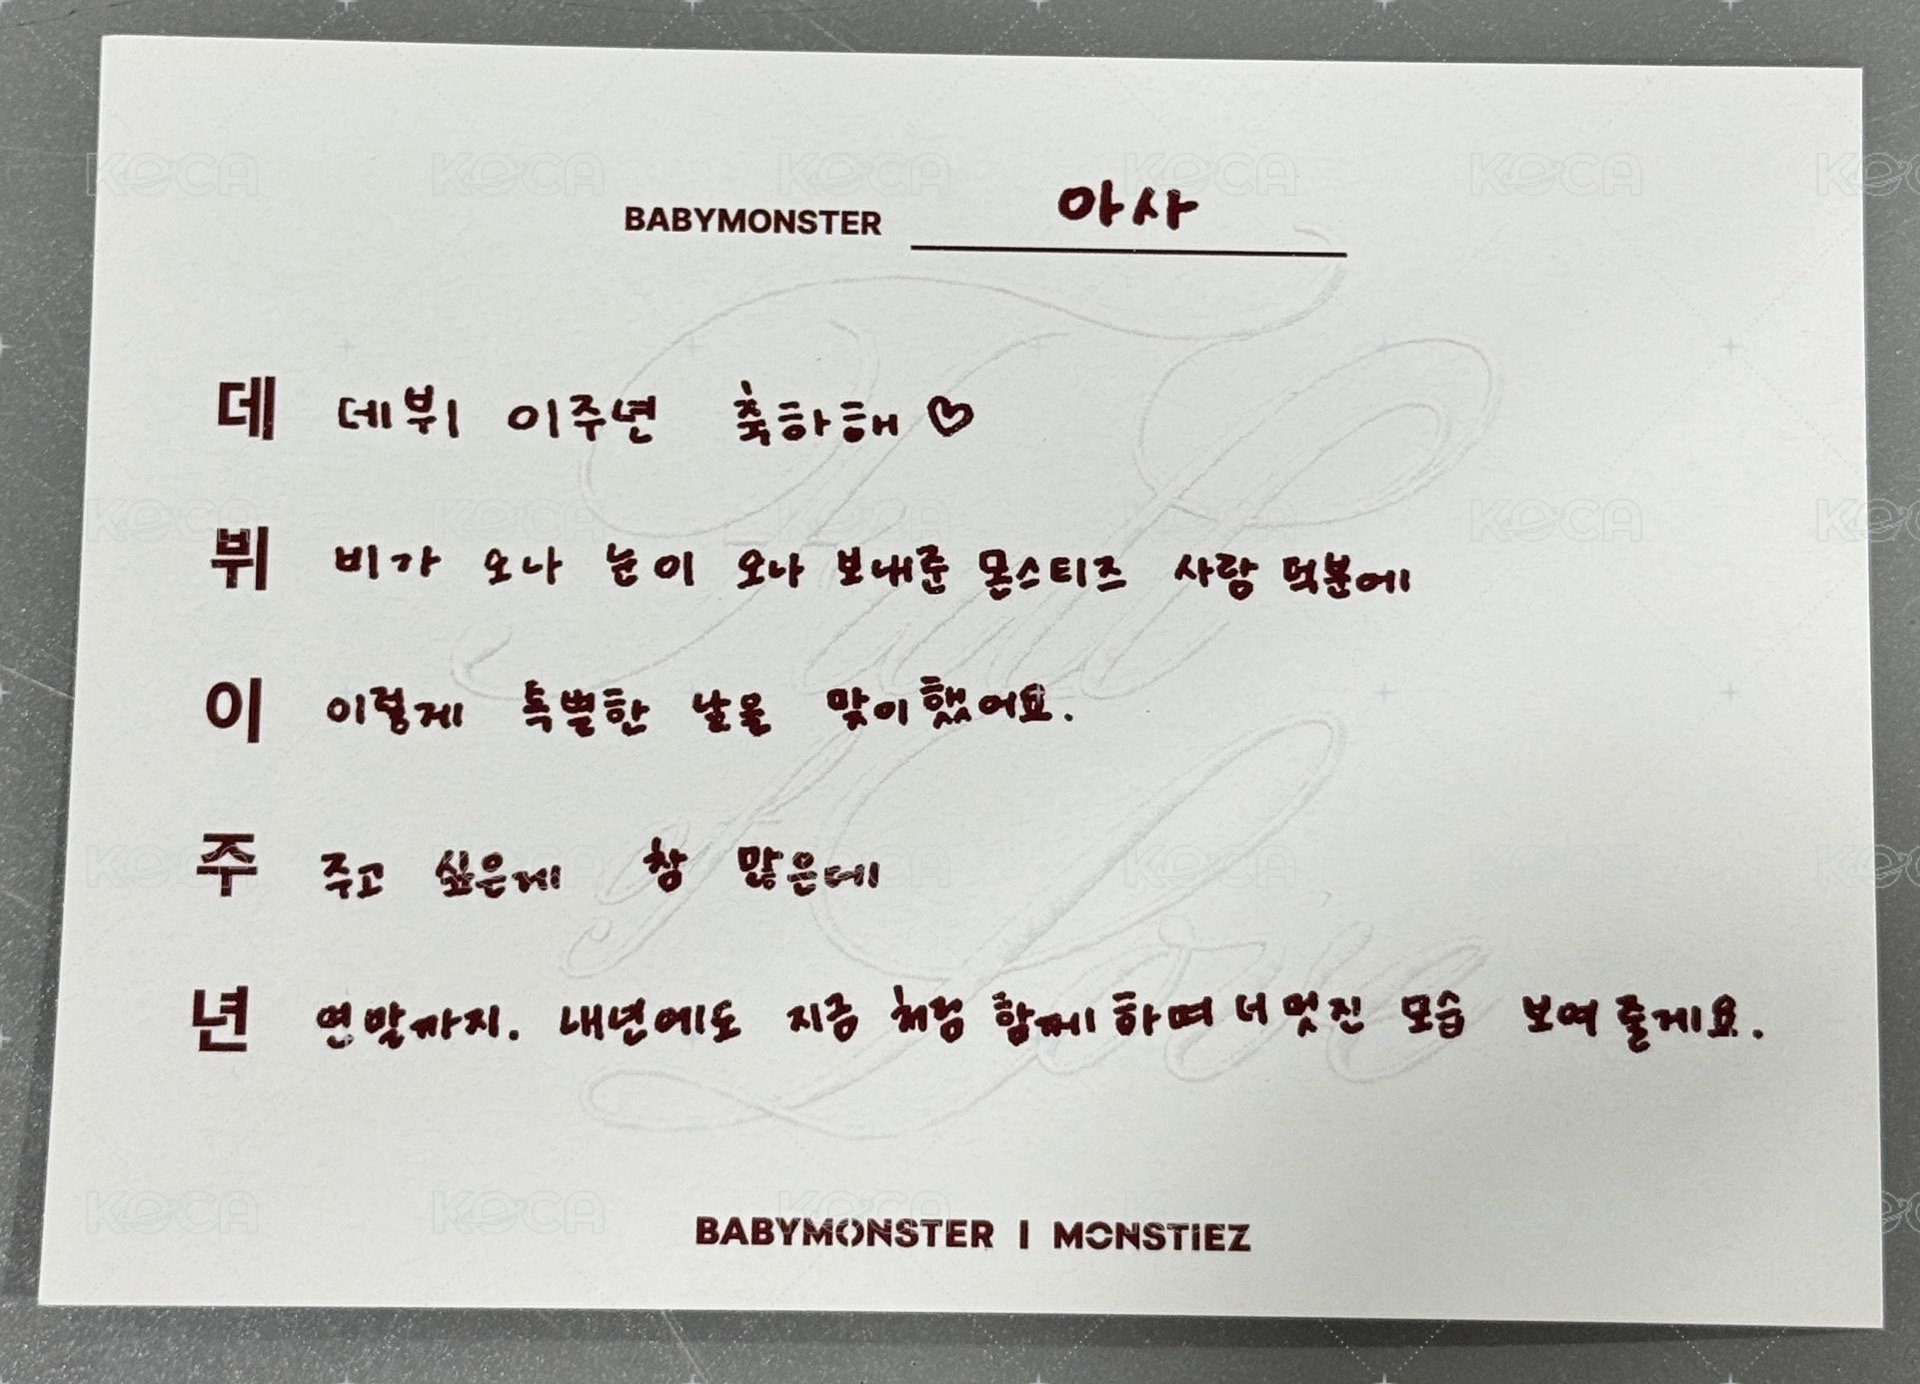 BABYMONSTER 아사
데 데뷔 이주년 축하해♡
뷔 비가 오나 눈이 오나 보내준 몬스티즈 사랑 덕분에
이 이렇게 특별한 날을 맞이했어요.
주 주고 싶은게 참 많은데
년 연말까지. 내년에도 지금 처럼 함께하며 더 멋진 모습 보여줄게요.
BABYMONSTER | MONSTIEZ
Full
of
Love
KOCA